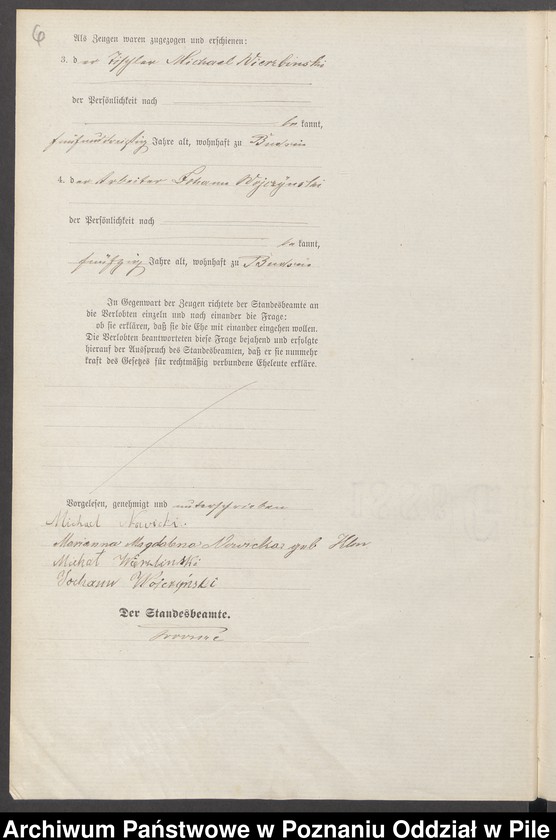 6
Als Zeugen waren zugezogen und erschienen:
3. der Tischler Michael Wierzbinski
der Persönlichkeit nach
be kannt,
fünfunddreißig Jahre alt, wohnhaft zu Budsin
4. der Arbeiter Johann Wojczynski
der Persönlichkeit nach
be kannt,
fünfzig Jahre alt, wohnhaft zu Budsin
In Gegenwart der Zeugen richtete der Standesbeamte an
die Verlobten einzeln und nach einander die Frage:
ob sie erklären, daß sie die Ehe mit einander eingehen wollen.
Die Verlobten beantworteten diese Frage bejahend und erfolgte
hierauf der Ausspruch des Standesbeamten, daß er sie nunmehr
kraft des Gesetzes für rechtmäßig verbundene Eheleute erkläre.
Vorgelesen, genehmigt und unterschrieben
Michael Nowicki.
Marianna Magdalena Nowicka geb
Michał Wierzbinski
Johann Wojczyński
Der Standesbeamte.
Archiwum Państwowe w Poznaniu Oddział w Pile